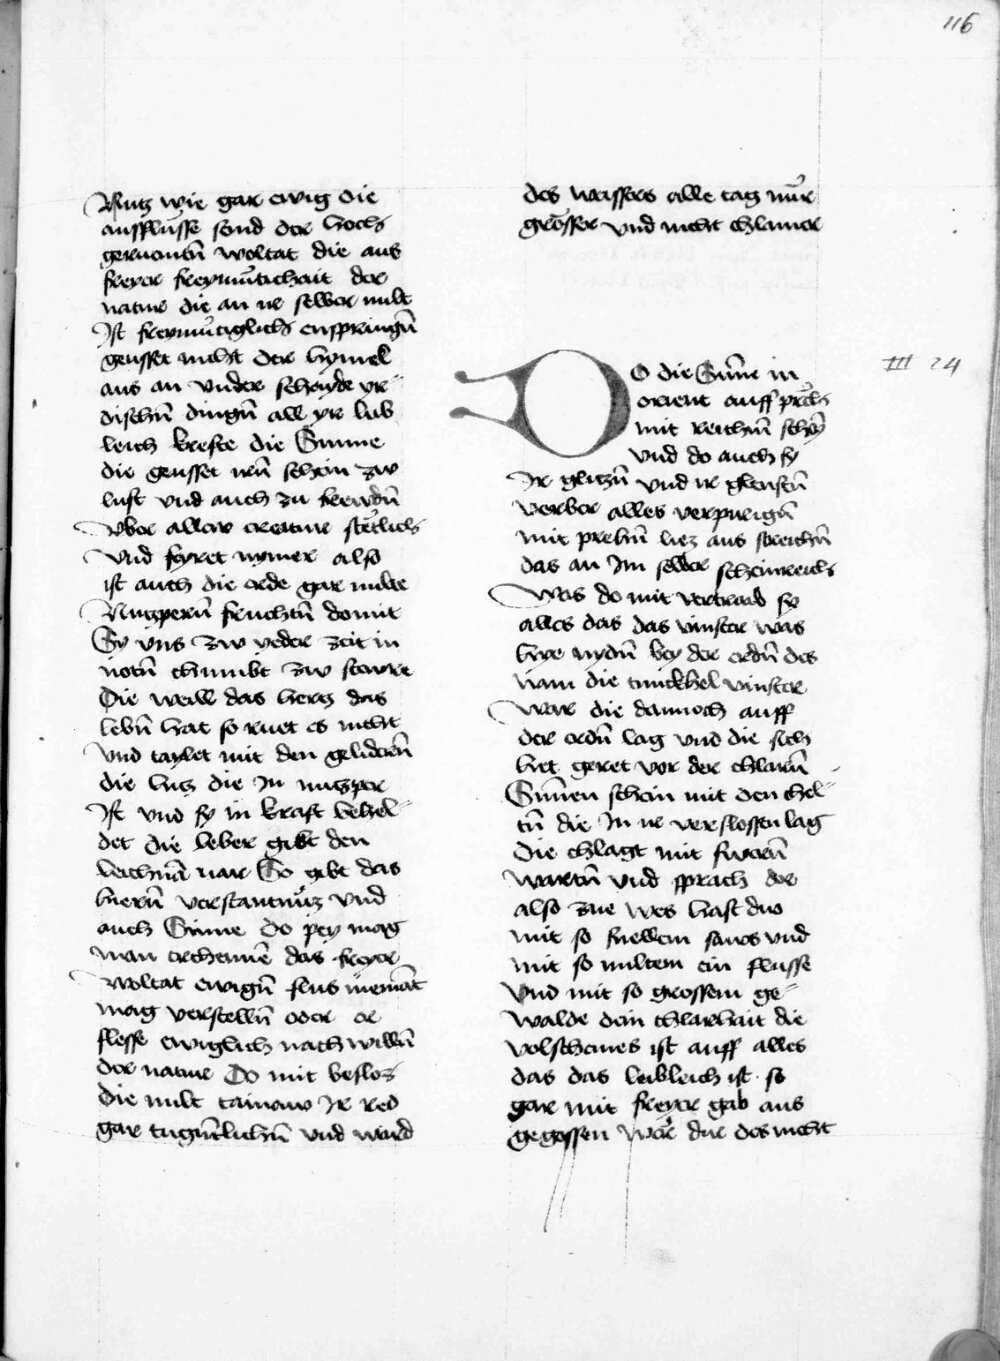 116
Nutz wie gar ewig die
ausflüsse send der hochs
geruentn̄ woltat die aus
freyer freymüticheit der
natur die an ir selber milt
Ist freymütiglichs enspringn̄
geusset nicht der hymel
aus an vnder scheyde yr=
dischn̄ dingn̄ all yr lieb
leich krefte die Sunne
die geusset irn̄ schein zw
lust vnd auch zu frewdn̄
vber aller creatur stetlichs
vnd feyret nymer also
ist auch die erde gar milte
Nutzpern̄ fruchtn̄ domit
Sy vns zw yeder zeit in
notn̄ chumbt zw stewre
Die weill das hertz das
lebn̄ hat so ruet es nicht
vnd taylet mit den gelidern̄
die hitz die In nutzper
Ist vnd sy in kraft behel=
det die leber gibt den
leichnā nar So gibt das
hiern̄ verstantnüz vnd
auch Sinne do pey mag
man erchennē das freyer
woltat ewign̄ flus niemāt
mag verstelln̄ oder er
flesse ewiglich nach willn̄
der natur Do mit besloz
die milt ir red
gar tuguntlichn̄ vnd ward
des wassers alle tag nür
grösser vnd nicht chlainer
III 24
DO die Sun̄ne in
orient auff prichs
mit reichn̄ schey
vnd do auch sy
Ir glitzn̄ vnd ir glenstn̄
verber alles verpurign̄
mit prehn̄ liez aus streichn̄
das an Im selber scheinreichs
Was do mit vertraib sy
alles das das vinster was
hye nydn̄ bey der erdn̄ des
wan die tunckhel vinster
War die dannoch auff
der erdn̄ lag vnd die sich
het geret vor der chlarn̄
Sunnen schein mit den chel=
tn̄ die In ir verslossen lag
Die chlagt mit swern̄
wartn̄ vnd sprach der
also zue wes hast duo
mit so snellem saws vnd
mit so miltem ein flusse
vnd mit so grossem ge=
walde dein chlarhait die
volscheines ist auff alles
das das leibleich ist so
gar mit freyer gab aus
gegossen wer dir des nicht